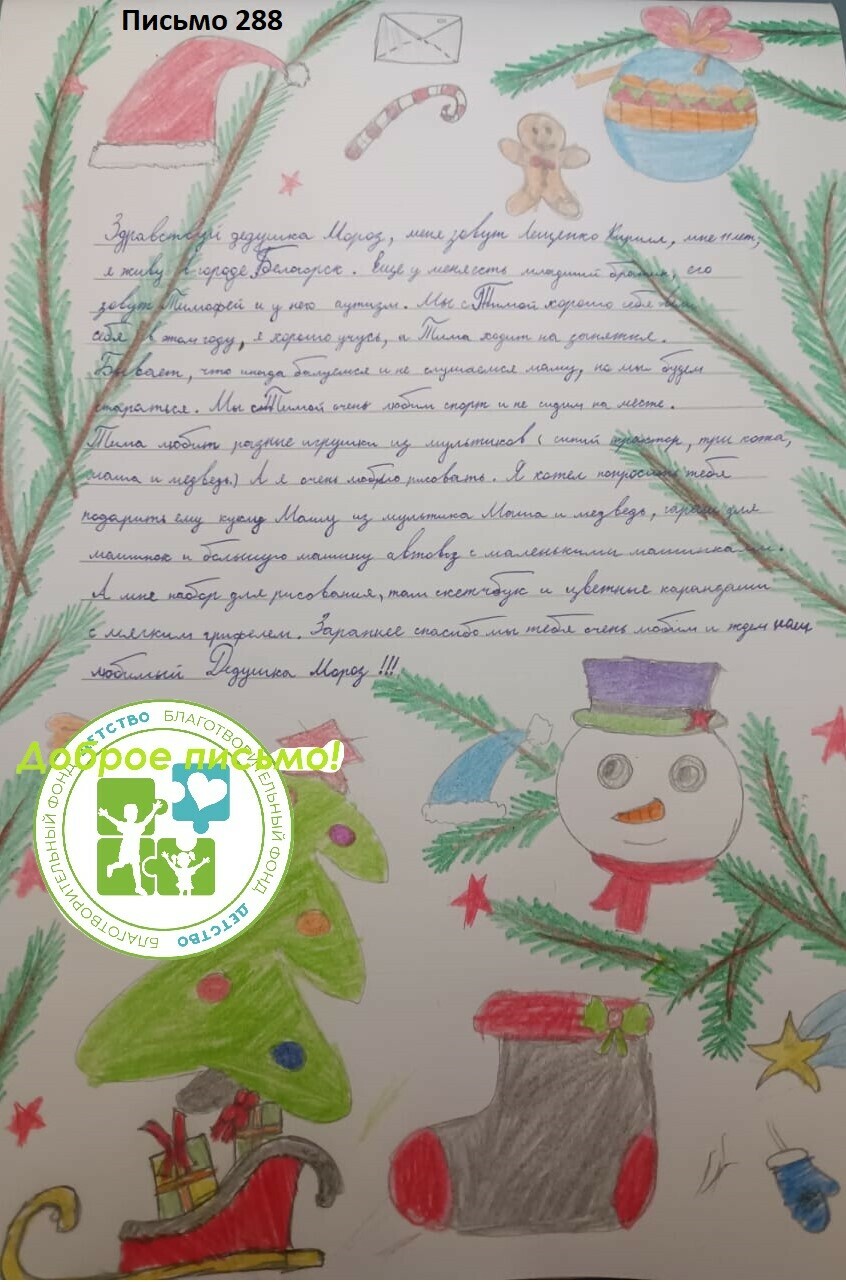 Письмо 288
Здравствуй дедушка Мороз, меня зовут Лещенко Кирилл, мне 11 лет,
я живу в городе Белогорск. Еще у меня есть младший братик, его
зовут Тимофей и у него аутизм. Мы с Тимой хорошо себя вели
себя в этом году, я хорошо учусь, а Тима ходит на занятия.
Бывает, что иногда балуемся и не слушаемся маму, но мы будем
стараться. Мы с Тимой очень любим спорт и не сидим на месте.
Тима любит разные игрушки из мультиков (синий трактор, три кота,
маша и медведь.) А я очень люблю рисовать. Я хотел попросить тебя
подарить ему куклу Машу из мультика Маша и медведь, гараж для
машинок и большую машину автовоз с маленькими машинками.
А мне набор для рисования, там скетчбук и цветные карандаши
с мягким грифелем. Заранее спасибо мы тебя очень любим и ждем наш
любимый Дедушка Мороз!!!
Доброе письмо!
БЛАГОТВОРИТЕЛЬНЫЙ ФОНД ДЕТСТВО
БЛАГОТВОРИТЕЛЬНЫЙ ФОНД ДЕТСТВО